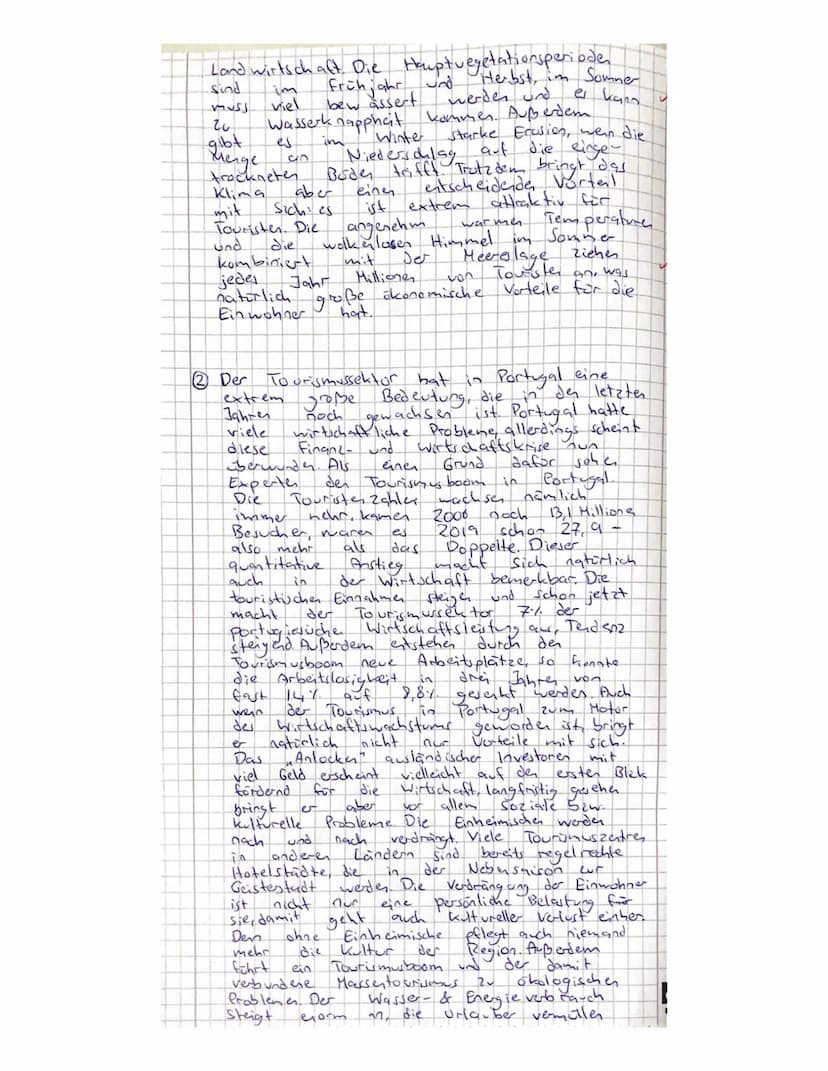 Landwirtschaft. Die Hauptvegetationsperioden
sind im Frühjahr und Herbst, im Sommer
muss viel bewässert werden und es kann
zu Wasserknappheit kommen. Außerdem
gibt es im Winter starke Erosion, wenn die
Menge an Niederschlag auf die einge-
trockneten Böden trifft. Trotzdem bringt das
Klima aber einen entscheidenden Vorteil
mit sich: es ist extrem attraktiv für
Touristen. Die angenehm warmen Temperaturen
und die wolkenlosen Himmel im Sommer
kombiniert mit der Meereslage ziehen
jedes Jahr Millionen von Touristen an, was
natürlich große ökonomische Vorteile für die
Einwohner hat.
② Der Tourismussektor hat in Portugal eine
extrem große Bedeutung, die in den letzten
Jahren noch gewachsen ist. Portugal hatte
viele wirtschaftliche Probleme, allerdings scheint
diese Finanz- und Wirtschaftskrise nun
überwunden. Als einen Grund dafür sehen
Experten den Tourismusboom in Portugal.
Die Touristenzahlen wachsen nämlich
immer mehr, kamen 2006 noch 13,1 Millionen
Besucher, waren es 2019 schon 27,9 -
also mehr als das Doppelte. Dieser
quantitative Anstieg macht sich natürlich
auch in der Wirtschaft bemerkbar. Die
touristischen Einnahmen steigen und schon jetzt
macht der Tourismussektor 7% der
portugiesische Wirtschaftsleistung aus, Tendenz
steigend. Außerdem entstehen durch den
Tourismusboom neue Arbeitsplätze, so konnte
die Arbeitslosigkeit in drei Jahren von
fast 14% auf 8,8% gesenkt werden. Auch
wenn der Tourismus in Portugal zum Motor
des Wirtschaftswachstums geworden ist, bringt
er natürlich nicht nur Vorteile mit sich.
Das „Anlocken" ausländischer Investoren mit
viel Geld erscheint vielleicht auf den ersten Blick
fördernd für die Wirtschaft, langfristig gesehen
bringt er aber vor allem soziale bzw.
kulturelle Probleme. Die Einheimischen werden
nach und nach verdrängt. Viele Tourismuszentren
in anderen Ländern sind bereits regelrechte
Hotelstädte, die in der Nebensaison zur
Geisterstadt werden. Die Verdrängung der Einwohner
ist nicht nur eine persönliche Belastung für
sie, damit geht auch kultureller Verlust einher.
Denn ohne Einheimische pflegt auch niemand
mehr die Kultur der Region. Außerdem
führt ein Tourismusboom und der damit
verbundene Massentourismus zu ökologischen
Problemen. Der Wasser- & Energieverbrauch
steigt enorm an, die Urlauber vermüllen